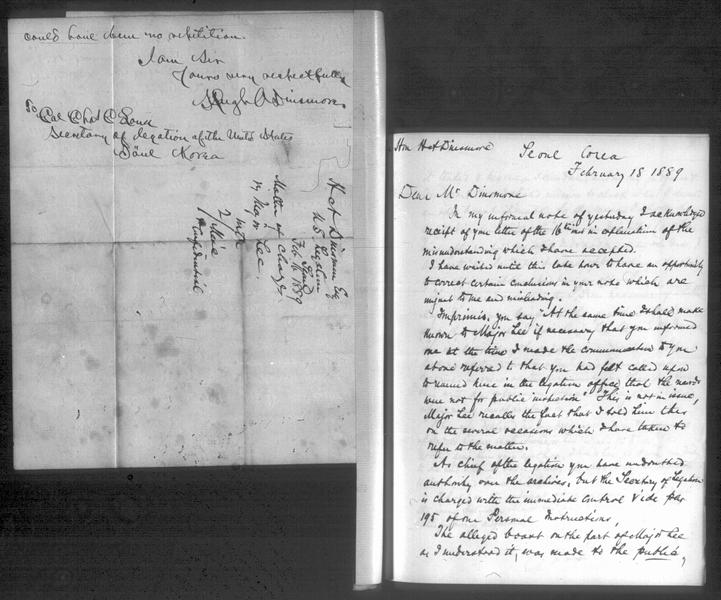 could have been no repetition.
I am Sir
Yours very respectfully
Hugh A Dinsmore
To Col Chas C Long
Secretary of legation of the United States
Söul Korea
H A Dinsmore Esq
U.S. Legation
Seoul
Feb 16 1889
Matter of charge
by Major Lee
Confidential
Hon H A Dinsmore
Seoul Corea
February 18 1889
Dear Mr Dinsmore
In my informal note of yesterday I acknowledged
receipt of your letter of the 16th inst in explanation of the
misunderstanding which I have accepted.
I have waited until this late hour to have an opportunity
to correct certain conclusions in your note which are
unjust to me and misleading.
Imprimis, you say "At the same time I shall make
known to Major Lee if necessary that you informed
me at the time I made the communication to you
above referred to that you had felt called upon
to remind him in the legation office that the records
were not for public inspection" This is not in issue,
Major Lee recalls the fact that I told him this
on the several occasions which I have taken to
refer to the matter.
As chief of the legation you have undoubted
authority over the archives, but the Secretary of Legation
is charged with the immediate control Vide par
195 of our Personal Instructions,
The alleged boast on the part of Major Lee
as I understood it, was made to the public,